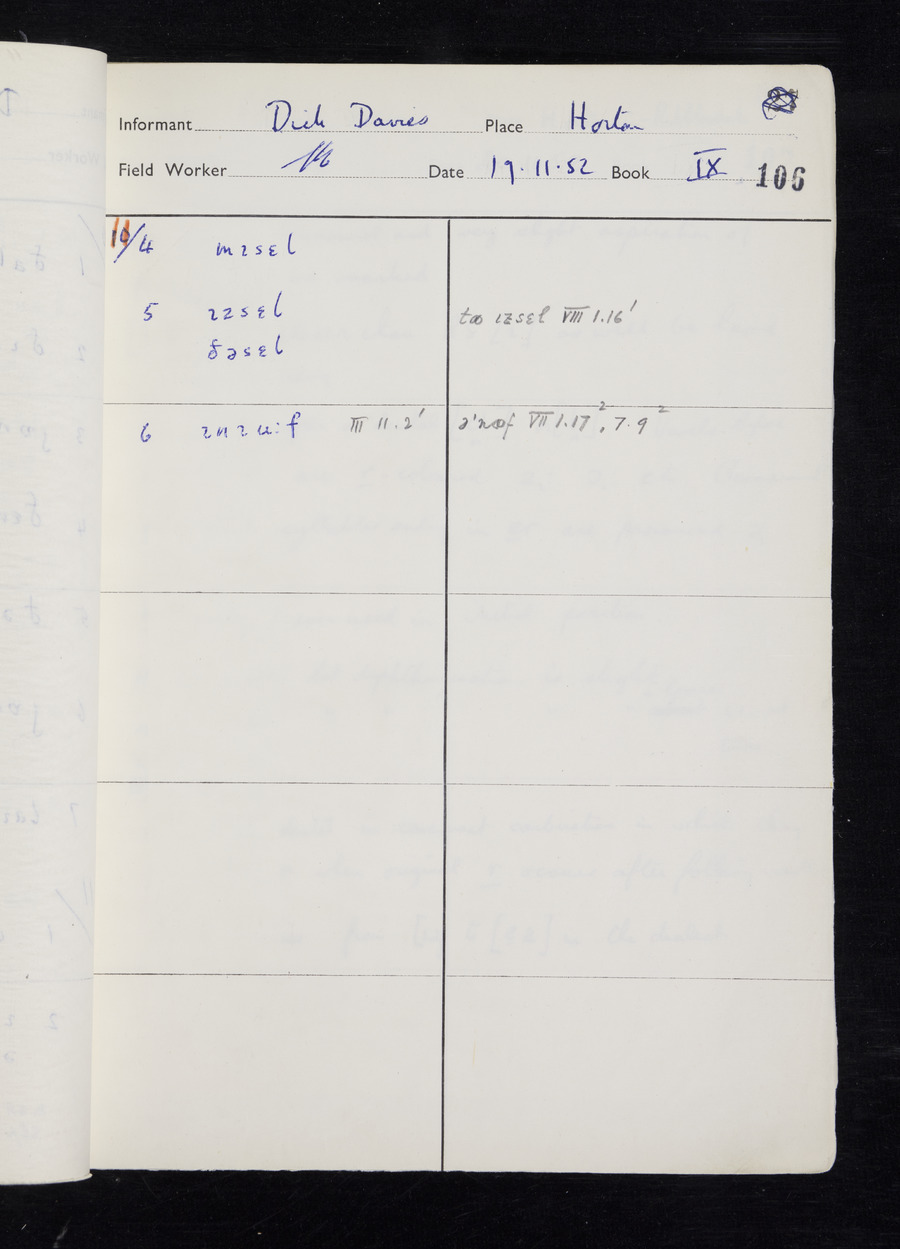 Informant Dick Davies Place Horton
Field Worker Date 19.11.52 Book IX 106
11/4 mɪsɛl
5 ɪzsɛl təʊ ɪzsɛl VIII 1.16'
ðəsɛl
6 ɪnɪu:f III 11.2' VII 1.17², 7.9²